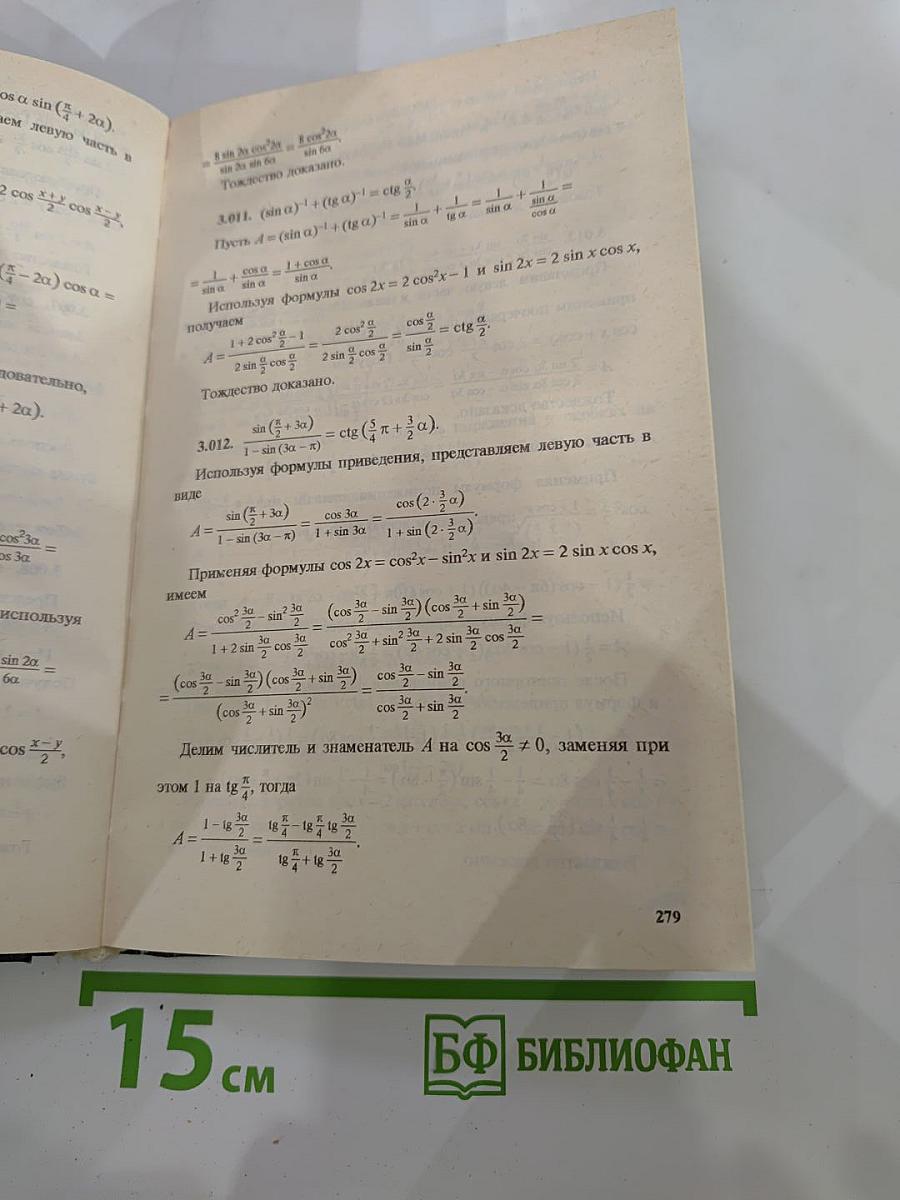 os α sin (π/4 + 2α).
ем левую часть в
2 cos (x+y)/2 cos (x−y)/2,
(π/4 − 2α) cos α =
=
довательно,
+ 2α).
cos²3α
os 3α =
используя
sin 2α
6α =
cos (x−y)/2,
= (8 sin 2α cos²2α)/(sin 2α sin 6α) = (8 cos²2α)/(sin 6α).
Тождество доказано.
3.011. (sin α)⁻¹ + (tg α)⁻¹ = ctg α/2.
Пусть A = (sin α)⁻¹ + (tg α)⁻¹ = 1/(sin α) + 1/(tg α) = 1/(sin α) + 1/((sin α)/(cos α)) =
= 1/(sin α) + (cos α)/(sin α) = (1 + cos α)/(sin α).
Используя формулы cos 2x = 2 cos²x − 1 и sin 2x = 2 sin x cos x,
получаем
A = (1 + 2 cos² α/2 − 1)/(2 sin α/2 cos α/2) = (2 cos² α/2)/(2 sin α/2 cos α/2) = (cos α/2)/(sin α/2) = ctg α/2.
Тождество доказано.
3.012. (sin (π/2 + 3α))/(1 − sin (3α − π)) = ctg (5/4 π + 3/2 α).
Используя формулы приведения, представляем левую часть в
виде
A = (sin (π/2 + 3α))/(1 − sin (3α − π)) = (cos 3α)/(1 + sin 3α) = (cos (2 · 3/2 α))/(1 + sin (2 · 3/2 α)).
Применяя формулы cos 2x = cos²x − sin²x и sin 2x = 2 sin x cos x,
имеем
A = (cos² 3α/2 − sin² 3α/2)/(1 + 2 sin 3α/2 cos 3α/2) = ((cos 3α/2 − sin 3α/2)(cos 3α/2 + sin 3α/2))/(cos² 3α/2 + sin² 3α/2 + 2 sin 3α/2 cos 3α/2) =
= ((cos 3α/2 − sin 3α/2)(cos 3α/2 + sin 3α/2))/((cos 3α/2 + sin 3α/2)²) = (cos 3α/2 − sin 3α/2)/(cos 3α/2 + sin 3α/2).
Делим числитель и знаменатель A на cos 3α/2 ≠ 0, заменяя при
этом 1 на tg π/4, тогда
A = (1 − tg 3α/2)/(1 + tg 3α/2) = (tg π/4 − tg π/4 tg 3α/2)/(tg π/4 + tg 3α/2).
279
15 см
БФ БИБЛИОФАН